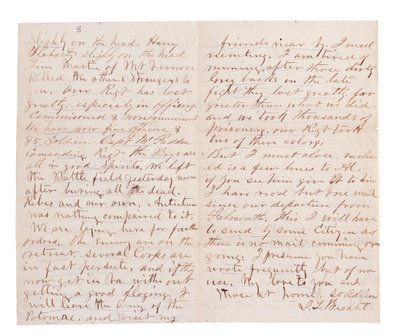 3
Slighly on the head. Harry
Flaharty slighly on the head
Tim Martin of Mt Vernon
killed the others Strangers to
you. Our Regt has lost
greatly especially in officers
Commissioned & noncommissioned
We have now five officers &
85 Soldiers. Capt
Comanding Regt. The Boys are
all in good Spirits, We left
the Battle field yesterday noon
after buring all the dead,
Rebes and our own, Antietum
was nothing compaired to it.
We are laying here for further
orders, the Enemy are on the
retreat, several Corps are
in fast persute, and if they
now get in Va with out
getting a good floging, I
will leave the army of the
Potomac, and visit my
friends near by I need
recruiting. I am tired of
running after those dirty
Grey backs in the late
fight they lost greatly far
greater than what we did
and we took thousands of
prisoners, our Regt took
two of there colors
But I must close, enclosed
is a few lines to Al.
if you see him give it to him
I have rec'd but one mail
since our departure from
Falmouth, This I will have
to send by some Citizen as
there is no mail comming or
going. I presume you have
wrote frequently but of no
use. My love to you and
those at home.